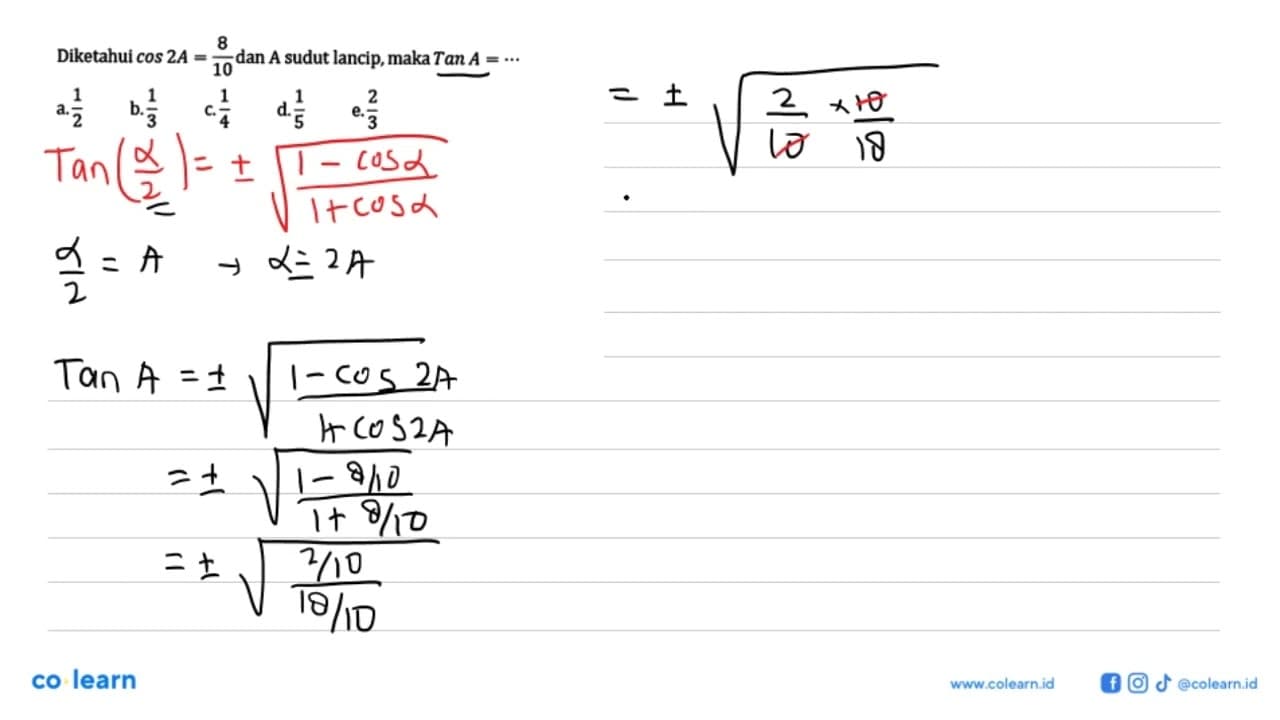 Diketahui cos 2A = 8/10 dan A sudut lancip, maka Tan A = ...
a. 1/2 b. 1/3 c. 1/4 d. 1/5 e. 2/3
Tan(α/2) = ± √((1 - cos α)/(1 + cos α))
α/2 = A → α = 2A
Tan A = ± √((1 - cos 2A)/(1+ cos 2A))
= ± √((1 - 8/10)/(1 + 8/10))
= ± √((2/10)/(18/10))
= ± √(2/10 × 10/18)
co learn
www.colearn.id
@colearn.id